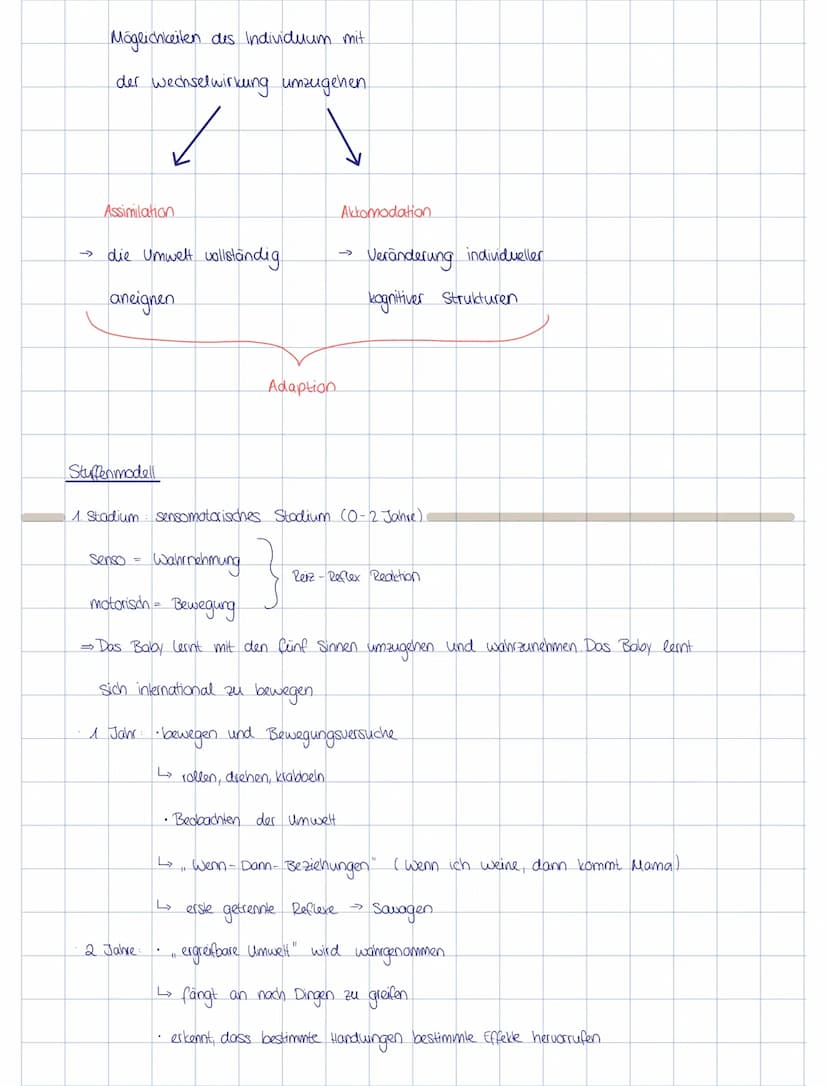 Möglichkeiten des Individuum mit
der Wechselwirkung umzugehen
Assimilation
Akkomodation
→ die Umwelt vollständig
aneignen
→ Veränderung individueller
kognitiver Strukturen
Adaption
Stuffenmodell
1 Stadium: sensomotorisches Stadium (0-2 Jahre)
senso = Wahrnehmung
motorisch = Bewegung
Reiz-Reflex Reaktion
⇒ Das Baby lernt mit den fünf Sinnen umzugehen und wahrzunehmen. Das Baby lernt
sich international zu bewegen
1 Jahr: · bewegen und Bewegungsversuche
↳ rollen, drehen, krabbeln
· Beobachten der Umwelt
↳ „Wenn-Dann-Beziehungen" (Wenn ich weine, dann kommt Mama)
↳ erste getrennte Reflexe → Sauagen
2 Jahre: · „ergreifbare Umwelt" wird wahrgenommen
↳ fängt an nach Dingen zu greifen
· erkennt, dass bestimmte Handlungen bestimmte Effekte hervorrufen